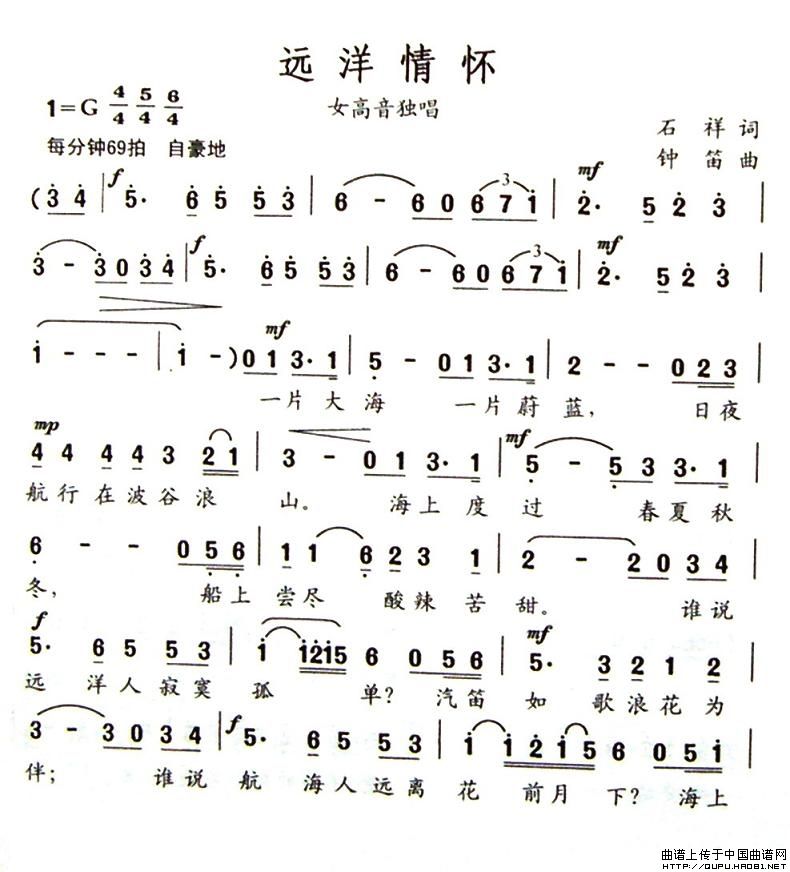 远洋情怀
1=G 4/4 5/4 6/4
女高音独唱
石祥词
每分钟69拍 自豪地
钟笛曲
f mf
(3 4 | 5· 6 5 5 3 | 6 - 6 0 6 7 1 | 2· 5 2 3 |
f mf
3 - 3 0 3 4 | 5· 6 5 5 3 | 6 - 6 0 6 7 1 | 2· 5 2 3 |
mf
1 - - - | 1 - ) 0 1 3· 1 | 5 - 0 1 3· 1 | 2 - - 0 2 3 |
一片大海 一片蔚蓝, 日夜
mp mf
4 4 4 4 3 2 1 | 3 - 0 1 3· 1 | 5 - 5 3 3 3· 1 |
航行在波谷浪 山。 海上度过 春夏秋
6 - - 0 5 6 | 1 1 6 2 3 1 | 2 - 2 0 3 4 |
冬, 船上尝尽 酸辣苦甜。 谁说
f mf
5· 6 5 5 3 | 1 1 2 1 5 6 0 5 6 | 5· 3 2 1 2 |
远洋人寂寞孤 单? 汽笛如 歌浪花为
f
3 - 3 0 3 4 | 5· 6 5 5 3 | 1 1 2 1 5 6 0 5 1 |
伴; 谁说航 海人远离花 前月下? 海上
曲谱上传于中国曲谱网
http://QUPU.HAO81.NET